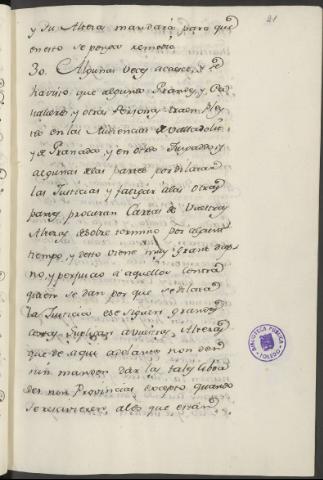 41
y su Alteza mandará para que
en esto se ponga remedio
30. Algunas veces acaece, y se
ha visto que algunos Grandes, y Ca-
valleros, y otras Personas traen Pley-
tos en las Audiencias de Valladolid,
y de Granada, y en otros Juzgados, y
algunas de las partes por dilatar
las Justicias y fatigar a las otras
partes, procuran Cartas de Vuestras
Altezas de sobre termino por algun
tiempo, y desto viene muy grant dap-
no, y perjuicio á aquellos contra
quien se dan por que se dilata
la Justicia e se siguen grandes
costas, Suplican a vuestras Altezas
que de aqui adelante non den
nin manden dar las tales Libra
des nin Provisiones, excepto quando
se requirieren, a los que están
BIBLIOTECA PUBLICA
TOLEDO